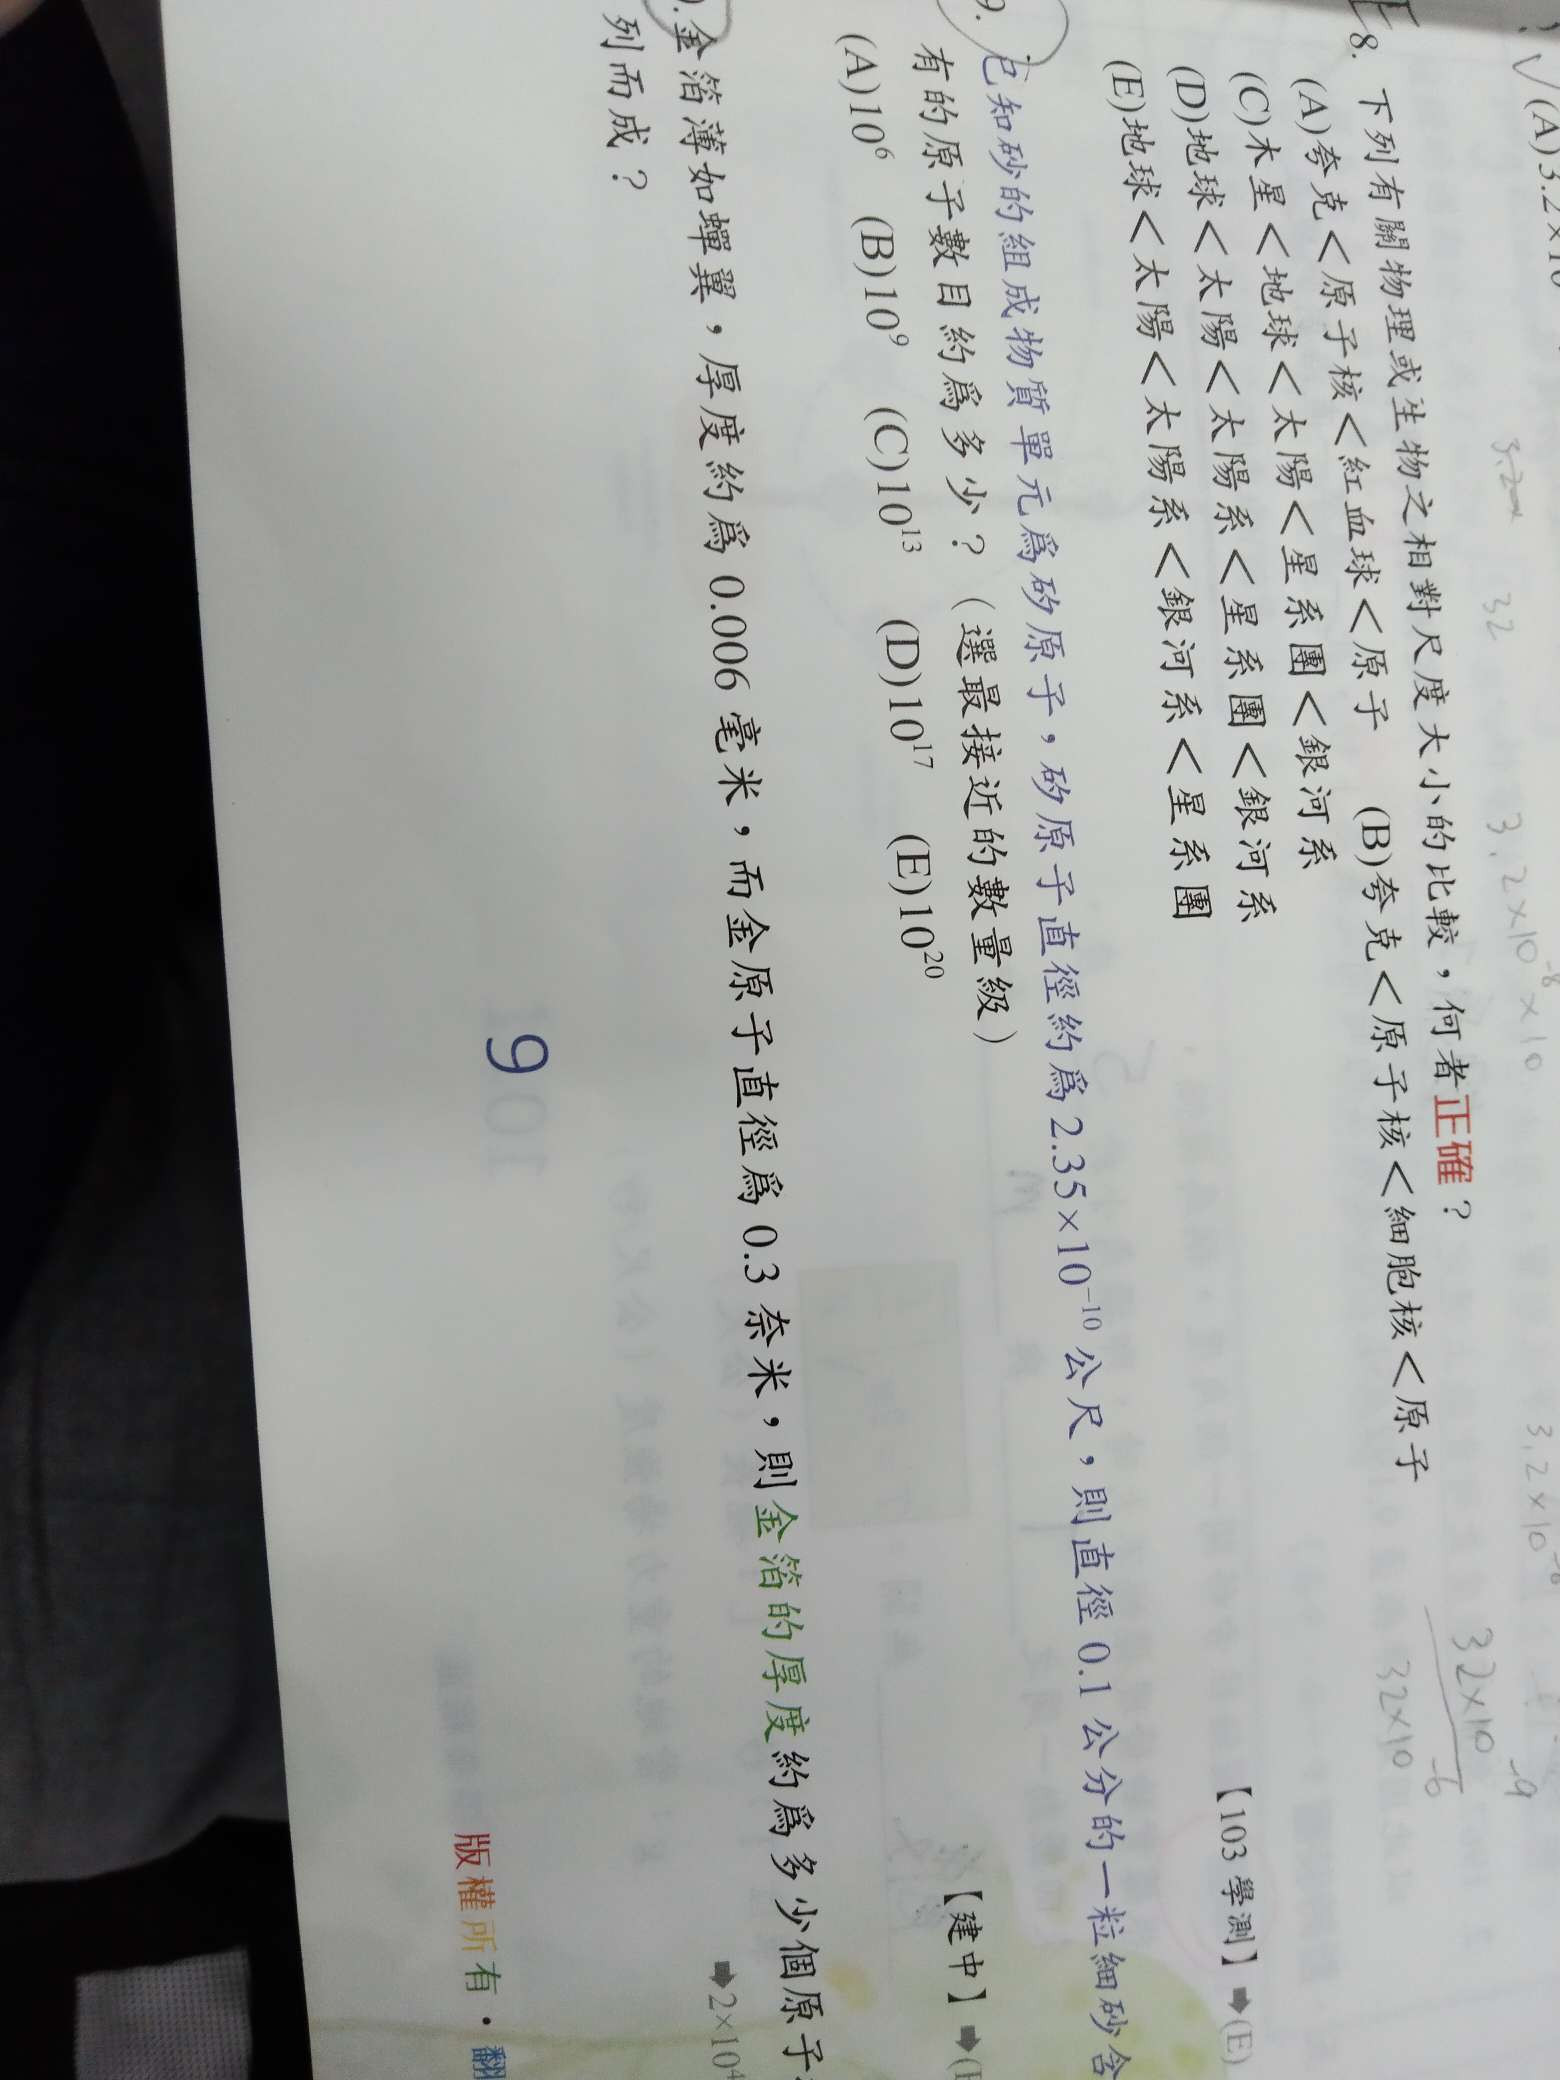 (A)3.2×10
3.2
32
3.2×10⁻⁸×10
3.2×10⁻⁸
32×10⁻⁹
32×10⁻⁶
8. 下列有關物理或生物之相對尺度大小的比較，何者正確？
(A)夸克＜原子核＜紅血球＜原子 (B)夸克＜原子核＜細胞核＜原子
(C)木星＜地球＜太陽＜星系團＜銀河系
(D)地球＜太陽＜太陽系＜星系團＜銀河系
(E)地球＜太陽＜太陽系＜銀河系＜星系團
【103 學測】➡(E)
9. 已知砂的組成物質單元爲矽原子，矽原子直徑約爲 2.35×10⁻¹⁰ 公尺，則直徑 0.1 公分的一粒細砂含
有的原子數目約爲多少？（選最接近的數量級）
(A)10⁶ (B)10⁹ (C)10¹³ (D)10¹⁷ (E)10²⁰
【建中】➡(
金箔薄如蟬翼，厚度約爲 0.006 毫米，而金原子直徑爲 0.3 奈米，則金箔的厚度約爲多少個原子
列而成？
➡2×10⁴
9
版權所有・翻